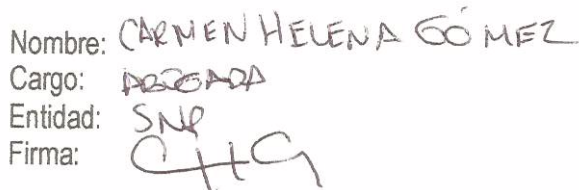 Nombre: CARMEN HELENA GÓMEZ
Cargo: ABOGADA
Entidad: SNR
Firma: CHG